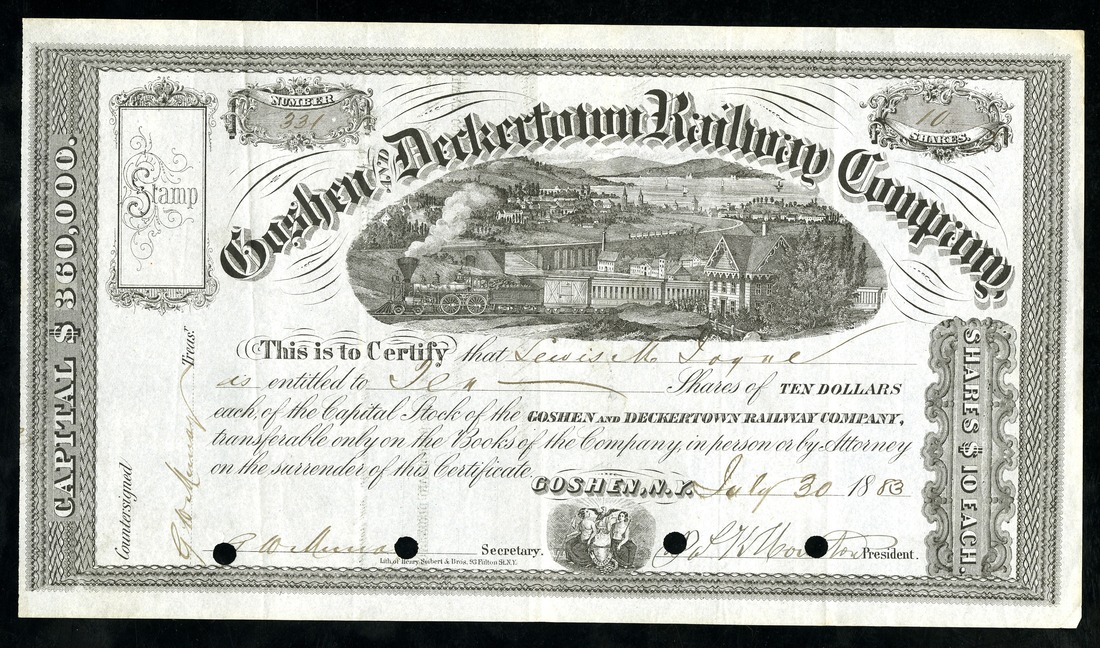 NUMBER
331
10
SHARES.
Stamp
Goshen AND Deckertown Railway Company,
CAPITAL $360,000.
SHARES $10 EACH.
This is to Certify that Lewis M
is entitled to Ten Shares of TEN DOLLARS
each, of the Capital Stock of the GOSHEN AND DECKERTOWN RAILWAY COMPANY,
transferable only on the Books of the Company, in person or by Attorney
on the surrender of this Certificate.
GOSHEN, N.Y. July 30 1883
Countersigned G W Murray Treasr.
G W Murray Secretary.
President.
Lith. of Henry Seibert & Bros. 93 Fulton St. N.Y.